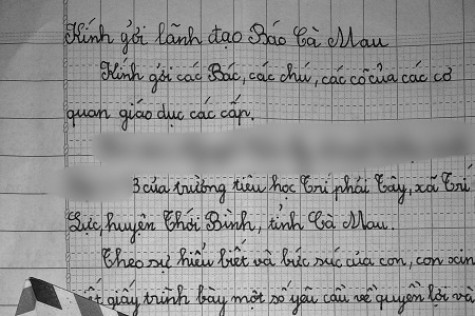 Kính gởi lãnh đạo Báo Cà Mau
Kính gởi các Bác, các chú, các cô của các cơ
quan giáo dục các cấp.
3 của trường tiểu học Trí phải Tây, xã Trí
Lực, huyện Thới Bình, tỉnh Cà Mau.
Theo sự hiểu biết và bức xúc của con, con xin
viết giấy trình bày một số yêu cầu về quyền lợi và